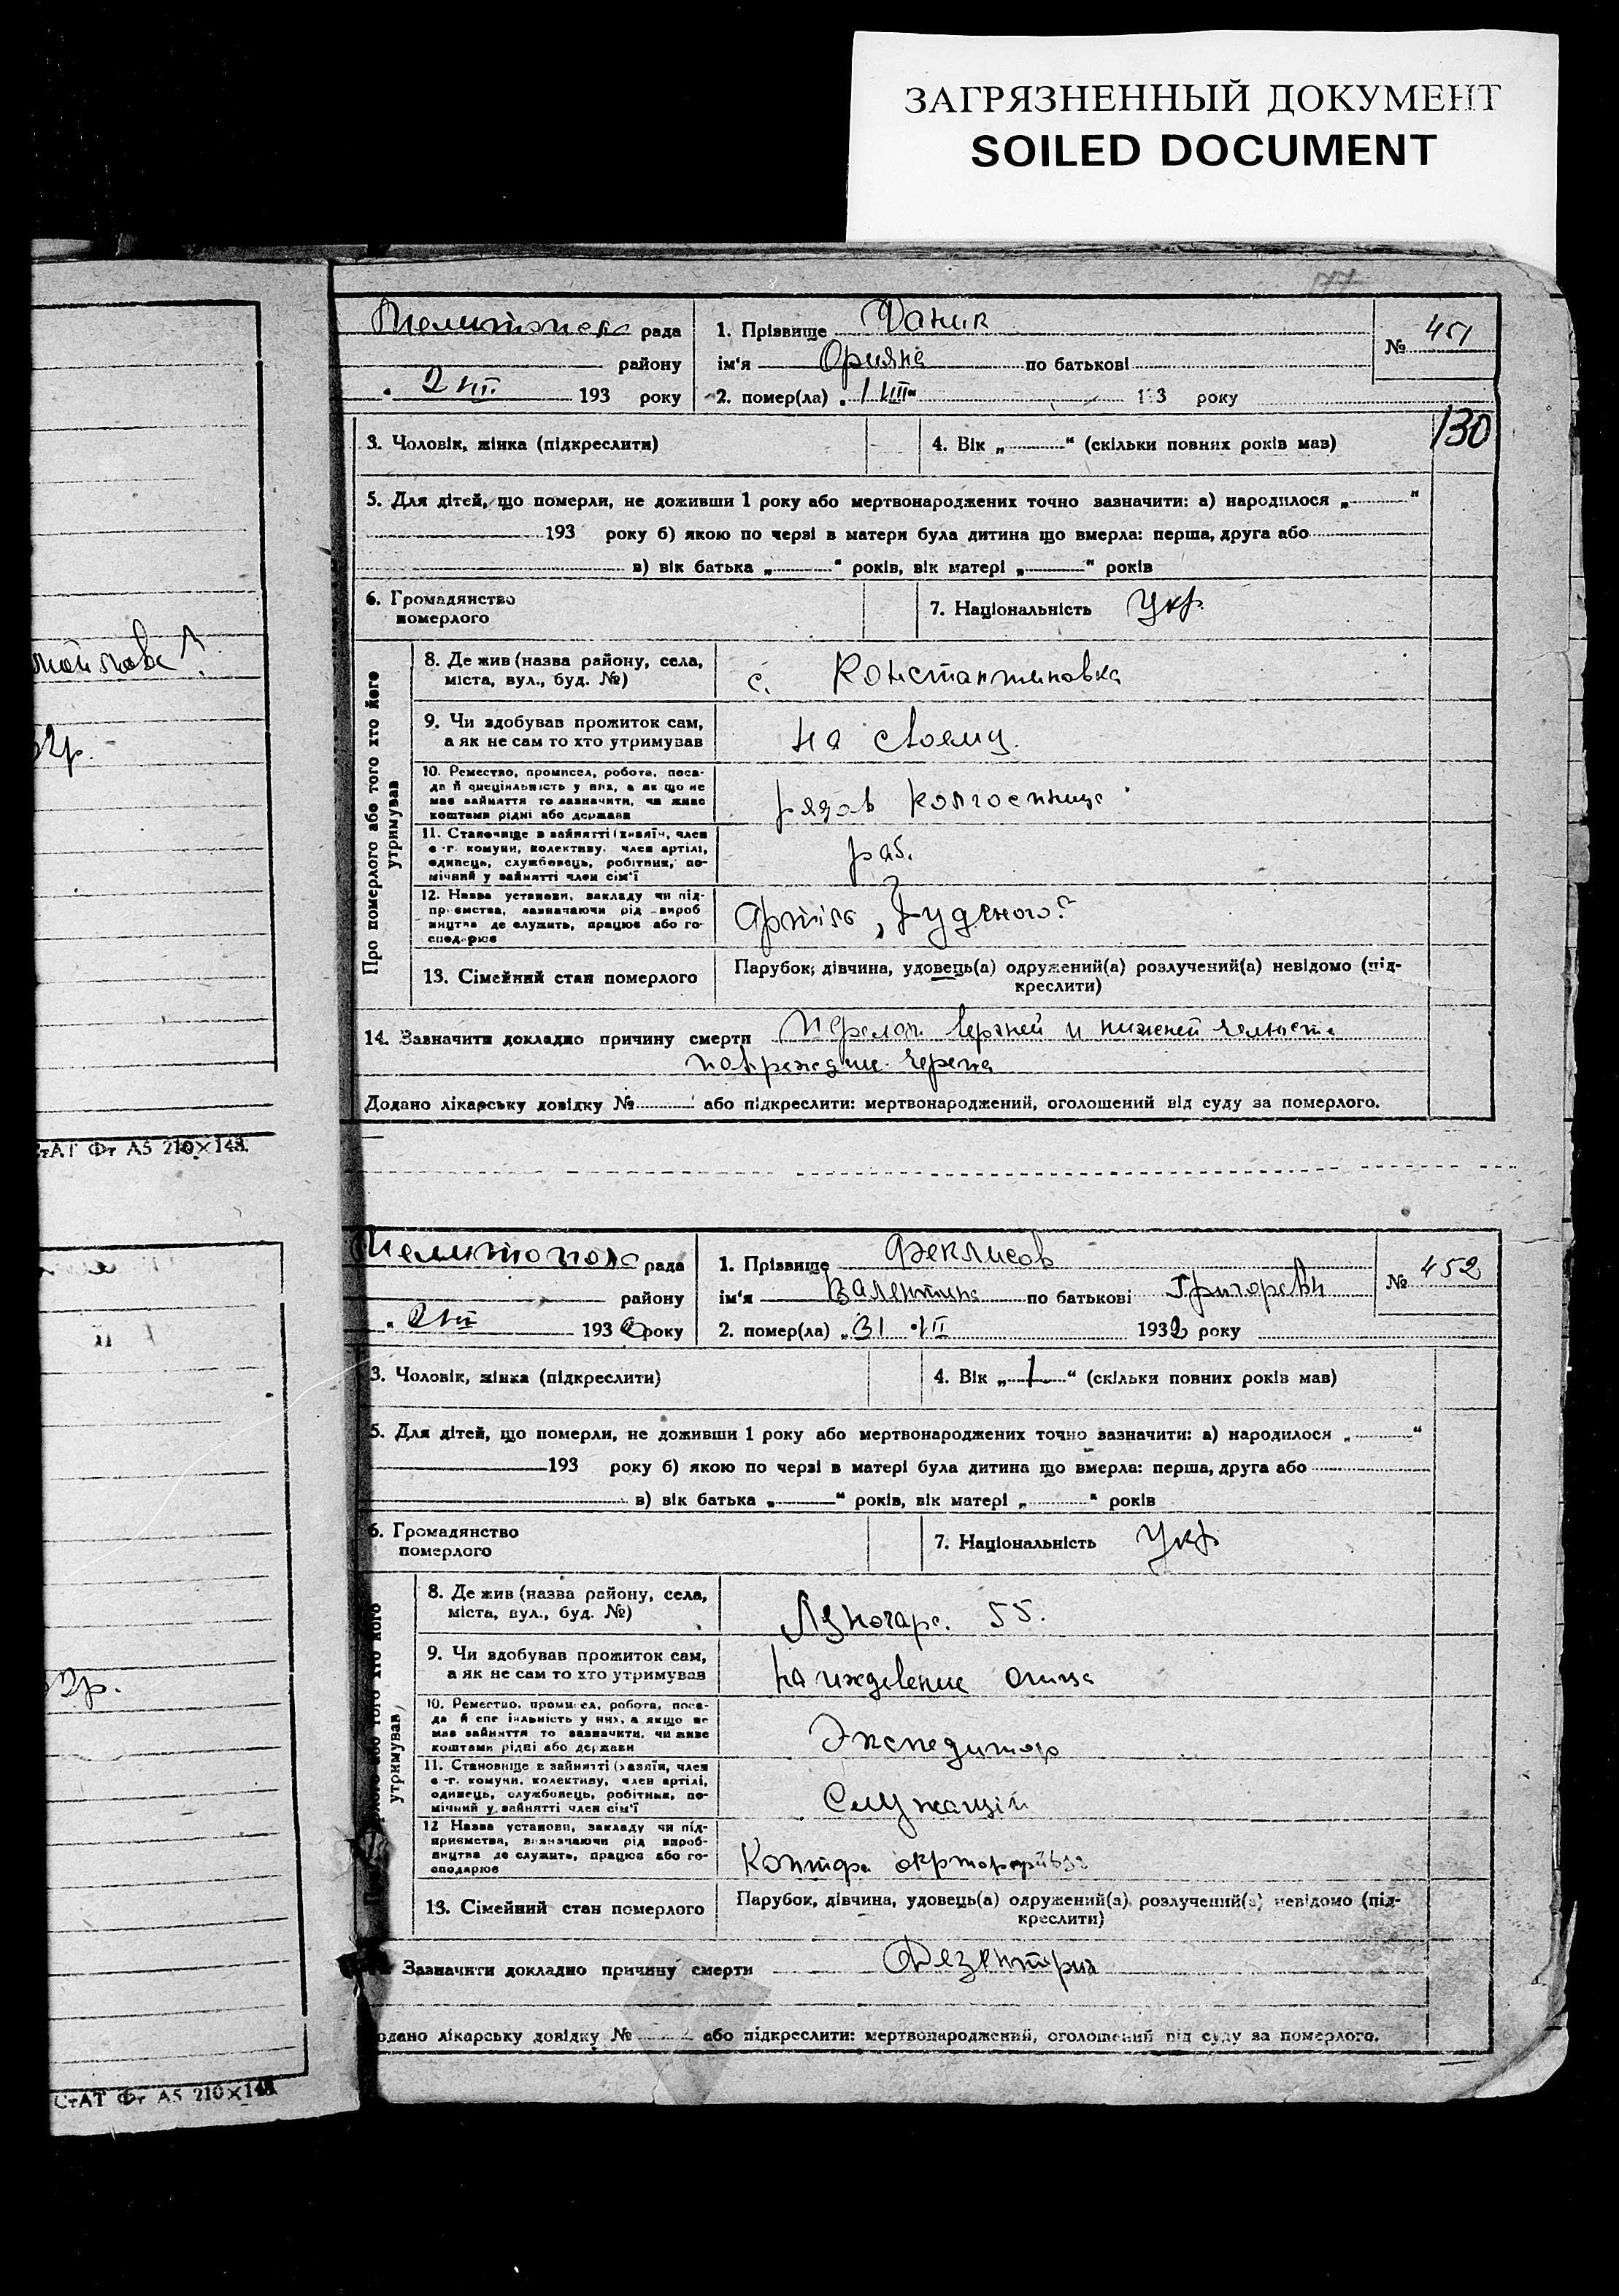 ЗАГРЯЗНЕННЫЙ ДОКУМЕНТ
SOILED DOCUMENT
77
рада
району
2 VIII 193 року
1. Прізвище Даник
ім'я по батькові
2. помер(ла) „ 1 VIII 193 року
№ 451
130
3. Чоловік, жінка (підкреслити)
4. Вік „ “ (скільки повних років мав)
5. Для дітей, що померли, не доживши 1 року або мертвонароджених точно зазначити: а) народилося „ “
193 року б) якою по черзі в матери була дитина що вмерла: перша, друга або
в) вік батька „ “ років, вік матері „ “ років
6. Громадянство
померлого
7. Національність Укр.
Про померлого або того хто його
утримував
8. Де жив (назва району, села,
міста, вул., буд. №)
с. Константиновка
9. Чи здобував прожиток сам,
а як не сам то хто утримував
на своем
10. Ремество, промисел, робота, поса-
да й спеціяльність у них, а як що не
має зайняття то зазначити, чи живе
коштами рідні або держави
11. Становище в зайнятті (хазяїн, член
с.-г. комуни, колективу, член артілі,
одинець, службовець, робітник, по-
мічний у зайнятті член сім'ї
раб.
12. Назва установи, закладу чи під-
приємства, зазначаючи рід вироб
ництва де служить, працює або го-
сподарює
13. Сімейний стан померлого
Парубок, дівчина, удовець(а) одружений(а) розлучений(а) невідомо (під-
креслити)
14. Зазначити докладно причину смерти перелом верхней и нижней челюсти
повреждение черепа
Додано лікарську довідку № або підкреслити: мертвонароджений, оголошений від суду за померлого.
СтАТ Фт А5 210×148.
рада
району
2 VIII 1932 року
1. Прізвище Феклисов
ім'я Валентина по батькові
2. помер(ла) „ 31 VII 1932 року
№ 452
3. Чоловік, жінка (підкреслити)
4. Вік „ 1 “ (скільки повних років мав)
5. Для дітей, що померли, не доживши 1 року або мертвонароджених точно зазначити: а) народилося „ “
193 року б) якою по черзі в матері була дитина що вмерла: перша, друга або
в) вік батька „ “ років, вік матері „ “ років
6. Громадянство
померлого
7. Національність Укр
утримував
8. Де жив (назва району, села,
міста, вул., буд. №)
Луночарс. 55.
9. Чи здобував прожиток сам,
а як не сам то хто утримував
на иждевение отца
10. Ремество, промисел, робота, поса-
да й спеціяльність у них, а якщо не
має зайняття то зазначити, чи живе
коштами рідні або держави
Экспедитор
11. Становище в зайнятті (хазяїн, член
с.-г. комуни, колективу, член артілі,
одинець, службовець, робітник, по-
мічний у зайнятті член сім'ї
Служащий
12 Назва установи, закладу чи під-
приємства, визначаючи рід вироб-
ництва де служить, працює або го-
сподарює
13. Сімейний стан померлого
Парубок, дівчина, удовець(а) одружений(а) розлучений(а) невідомо (під-
креслити)
Зазначити докладно причину смерти Дезентерия
Додано лікарську довідку № або підкреслити: мертвонароджений, оголошений від суду за померлого.
СтАТ Фт А5 210×148